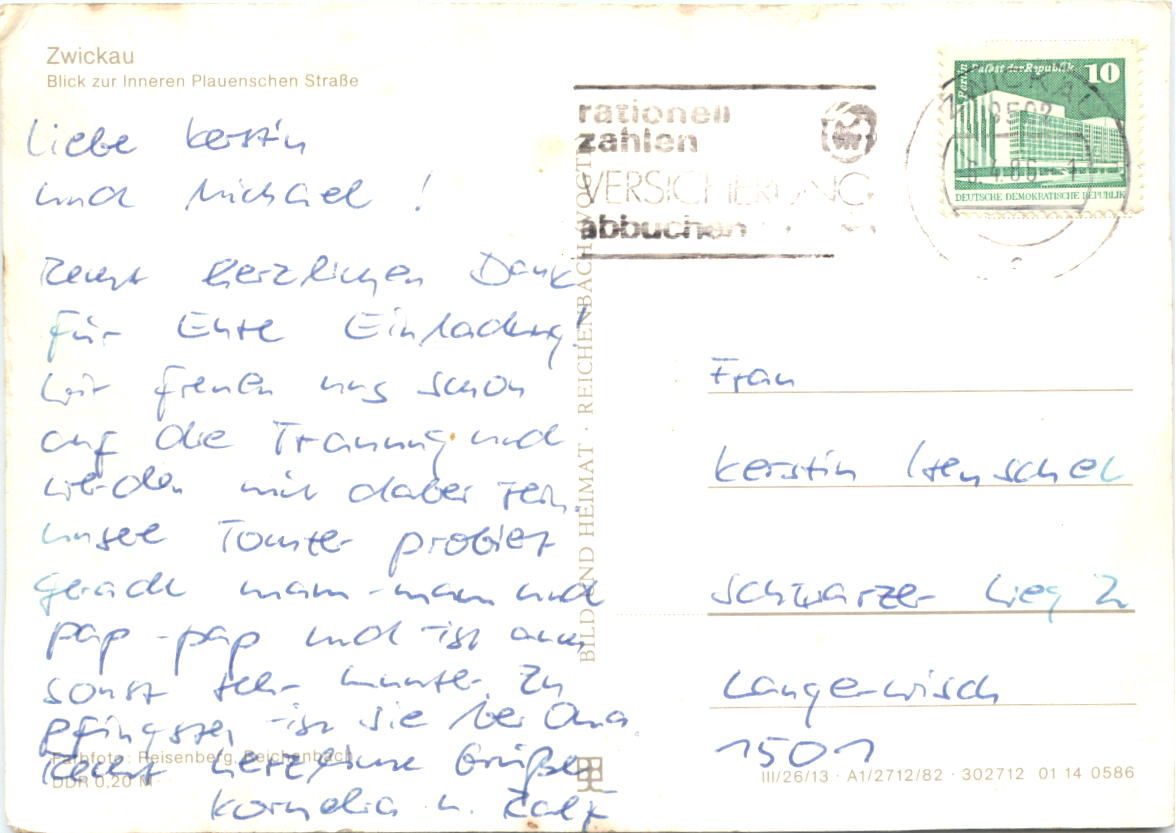 Zwickau
Blick zur Inneren Plauenschen Straße
Liebe Kerstin
und Michael!
Recht herzlichen Dank
für Eure Einladung!
Wir freuen uns schon
auf die Trauung und
werden mit dabei sein.
Unsere Tochter probiert
gerade mam-mam und
pap-pap und ist auch
sonst sehr munter. Zu
Pfingsten ist sie bei Oma
Recht herzliche Grüße
Kornelia u. Ralf
Farbfoto: Reisenberg, Reichenbach
DDR 0,20 M
BILD UND HEIMAT · REICHENBACH (VOGTL
rationell
zahlen
VERSICHERUNG
abbuchen
Palast der Republik 10
DEUTSCHE DEMOKRATISCHE REPUBLIK
ZWICKAU
Frau
Kerstin Henschel
Schwarzer Weg 2
Langerwisch
1501
III/26/13 · A1/2712/82 · 302712 01 14 0586